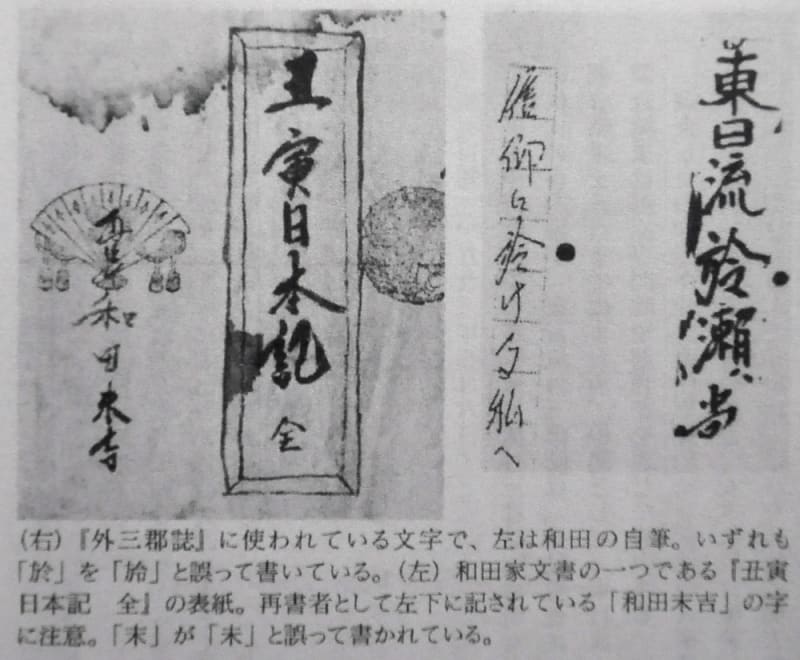 東日流於瀬尚
信仰に於ける私へ
丑寅日本記 全
再書 和田未吉
(右)『外三郡誌』に使われている文字で、左は和田の自筆。いずれも
「於」を「」と誤って書いている。(左)和田家文書の一つである『丑寅
日本記 全』の表紙。再書者として左下に記されている「和田末吉」の字
に注意。「末」が「未」と誤って書かれている。